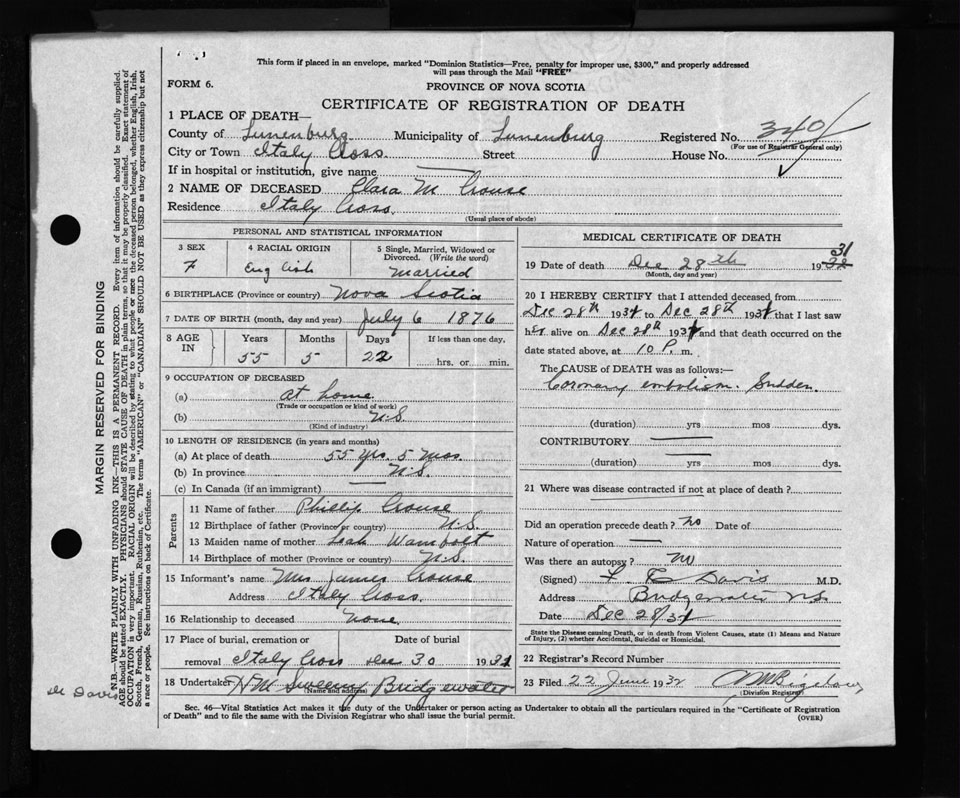 This form if placed in an envelope, marked "Dominion Statistics—Free, penalty for improper use, $300," and properly addressed
will pass through the Mail "FREE"
FORM 6.
PROVINCE OF NOVA SCOTIA
CERTIFICATE OF REGISTRATION OF DEATH
1 PLACE OF DEATH—
County of Lunenburg Municipality of Lunenburg Registered No. 340
(For use of Registrar General only)
City or Town Italy Cross Street House No.
If in hospital or institution, give name —
2 NAME OF DECEASED Clara M Crouse
Residence Italy Cross.
(Usual place of abode)
PERSONAL AND STATISTICAL INFORMATION
3 SEX 4 RACIAL ORIGIN 5 Single, Married, Widowed or Divorced. (Write the word)
F English Married
6 BIRTHPLACE (Province or country) Nova Scotia
7 DATE OF BIRTH (month, day and year) July 6 1876
8 AGE IN Years Months Days If less than one day.
55 5 22 hrs. or min.
9 OCCUPATION OF DECEASED
(a) At home
(Trade or occupation or kind of work)
(b) N.S
(Kind of industry)
10 LENGTH OF RESIDENCE (in years and months)
(a) At place of death 55 yrs. 5 Mos.
(b) In province N.S.
(c) In Canada (if an immigrant) —
Parents
11 Name of father Phillip Crouse
12 Birthplace of father (Province or country) N.S.
13 Maiden name of mother Leah Wambolt
14 Birthplace of mother (Province or country) N.S.
15 Informant's name Mrs James Crouse
Address Italy Cross.
16 Relationship to deceased None
17 Place of burial, cremation or removal Date of burial
Italy Cross Dec 30 1931
18 Undertaker H M Sweeny Bridgewater
Name and address
MEDICAL CERTIFICATE OF DEATH
19 Date of death Dec 28th 1932 31
(Month, day and year)
20 I HEREBY CERTIFY that I attended deceased from
Dec 28th 1931 to Dec 28th 1931 that I last saw
her alive on Dec 28th 1931 and that death occurred on the
date stated above, at 10 P. m.
The CAUSE of DEATH was as follows:—
Coronary embolism. Sudden.
(duration) yrs mos dys.
CONTRIBUTORY —
(duration) — yrs mos dys.
21 Where was disease contracted if not at place of death?
Did an operation precede death? No Date of
Nature of operation —
Was there an autopsy? No
(Signed) F E Davis M.D.
Address Bridgewater N.S.
Date Dec 28/31
State the Disease causing Death, or in death from Violent Causes, state (1) Means and Nature
of Injury, (2) whether Accidental, Suicidal or Homicidal.
22 Registrar's Record Number
23 Filed 22 June 1932
(Division Registrar)
Sec. 46—Vital Statistics Act makes it the duty of the Undertaker or person acting as Undertaker to obtain all the particulars required in the "Certificate of Registration
of Death" and to file the same with the Division Registrar who shall issue the burial permit.
(OVER)
MARGIN RESERVED FOR BINDING
N.B.—WRITE PLAINLY WITH UNFADING INK—THIS IS A PERMANENT RECORD. Every item of information should be carefully supplied.
AGE should be stated EXACTLY. PHYSICIANS should STATE CAUSE OF DEATH in plain terms, so that it may be properly classified. Exact statement of
OCCUPATION is very important. RACIAL ORIGIN will be described by stating to what people or race the deceased person belonged, whether English, Irish,
Scotch, French, German, Russian, Ruthenian, etc. The terms "AMERICAN" or "CANADIAN" SHOULD NOT BE USED as they express citizenship but not
a race or people. See instructions on back of Certificate.
Dr Davis